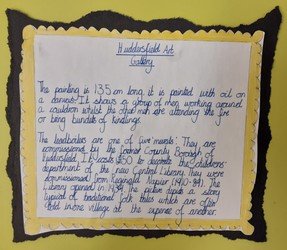 Huddersfield Art
Gallery
The painting is 135cm long, it is painted with oil on
a canvas. It shows a group of men working around
a cauldron whilst the other men are attending the fire
or bring bundles of kindlings.
The leadboilers are one of five murals. They are
commissioned by the former County Borough of
Huddersfield. It costs £50 to decorate the Childrens'
department of the new Central Library. They were
commissioned from Reginald Napier (1910-84). The
Library opened in 1939. The picture depicts a story
typical of traditional folk tales which are often
told in one village at the expense of another.